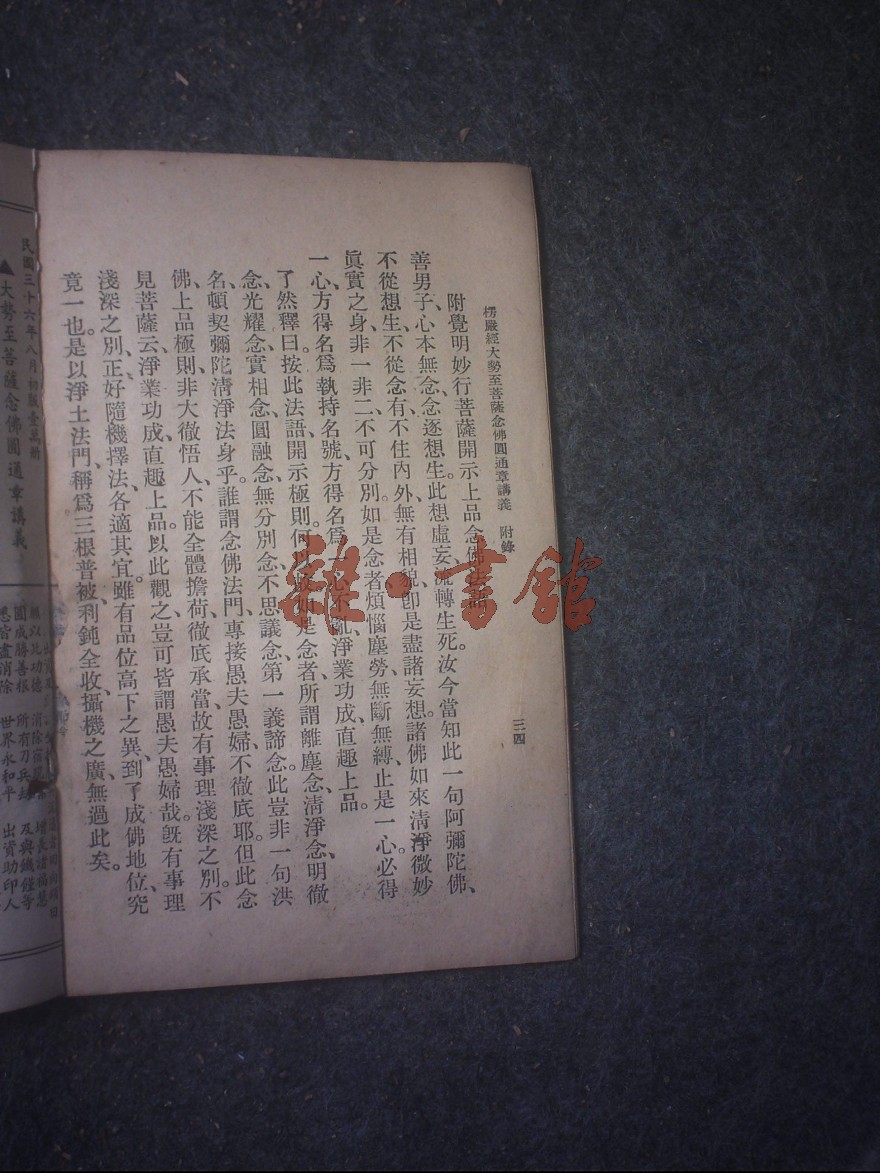 楞嚴經大勢至菩薩念佛圓通章講義　附錄
三四
附覺明妙行菩薩開示上品念佛法語
善男子、心本無念、念逐想生、此想虛妄、流轉生死。汝今當知此一句阿彌陀佛、
不從想生、不從念有、不住內外、無有相貌、卽是盡諸妄想、諸佛如來淸淨微妙
眞實之身、非一非二、不可分別、如是念者、煩惱塵勞、無斷無縛、止是一心、必得
一心、方得名爲執持名號、方得名爲一心不亂、淨業功成、直趣上品。
了然釋曰、按此法語、開示極則、何以故、如是念者、所謂離塵念、淸淨念、明徹
念、光耀念、實相念、圓融念、無分別念、不思議念、第一義諦念。此豈非一句洪
名、頓契彌陀淸淨法身乎。誰謂念佛法門、專接愚夫愚婦、不徹底耶。但此念
佛上品極則、非大徹悟人、不能全體擔荷、徹底承當、故有事理淺深之別。不
見菩薩云、淨業功成、直趣上品。以此觀之、豈可皆謂愚夫愚婦哉。旣有事理
淺深之別、正好隨機擇法、各適其宜。雖有品位高下之異、到了成佛地位、究
竟一也。是以淨土法門、稱爲三根普被、利鈍全收、攝機之廣、無過此矣。
民國三十六年八月初版
▲大勢至菩薩念佛圓通章講義
願以此功德　消除宿現　增長諸福慧
圓成勝善根　所有刀兵劫　及與饑饉等
悉皆盡消除　世界永和平　出資助印人
雜·書館